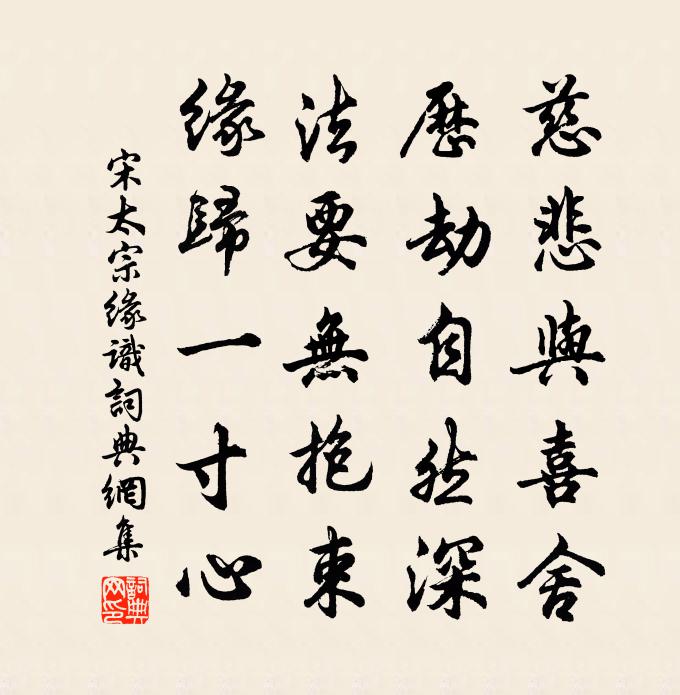 慈悲與喜舍
歷劫自然深
法要無拘束
緣歸一寸心
宋太宗緣識詞典網集